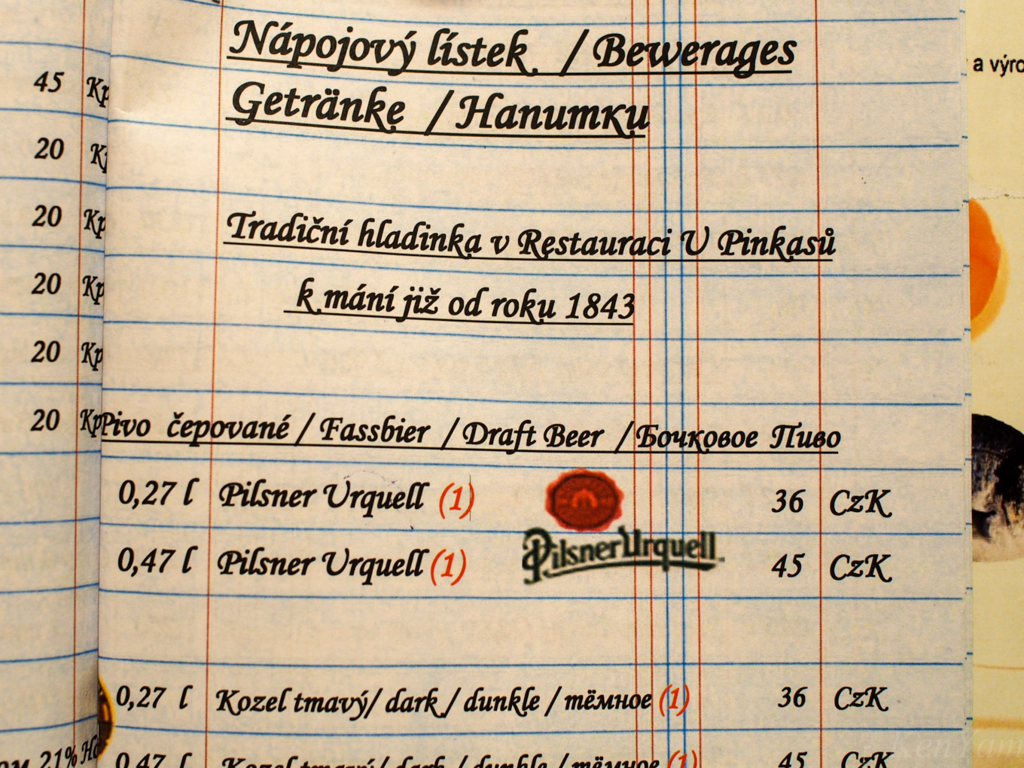 Nápojový lístek / Bewerages
Getränke / Напитки
Tradiční hladinka v Restauraci U Pinkasů
k mání již od roku 1843
Pivo čepované / Fassbier / Draft Beer / Бочковое Пиво
0,27 l Pilsner Urquell (1) 36 CzK
0,47 l Pilsner Urquell (1) 45 CzK
Pilsner Urquell
0,27 l Kozel tmavý/ dark / dunkle / тёмное (1) 36 CzK
0,47 l Kozel tmavý/ dark / dunkle / тёмное (1) 45 CzK
45 Кр
20 Кр
20 Кр
20 Кр
20 Кр
20 Кр
ом 21% На
a výro